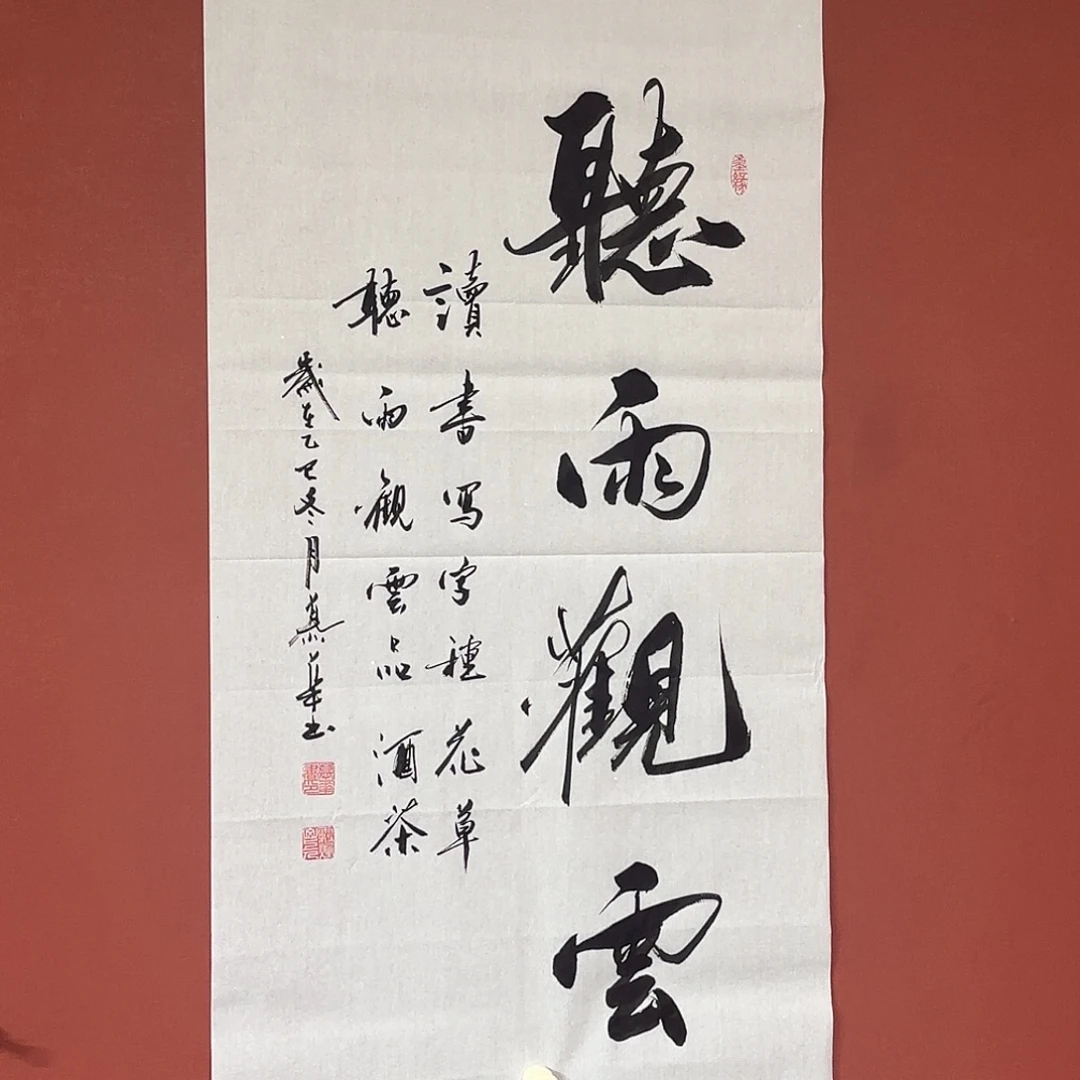 聽雨觀雲
讀書写字種花草
聽雨觀雲品酒茶
歲在乙巳冬月慕華书